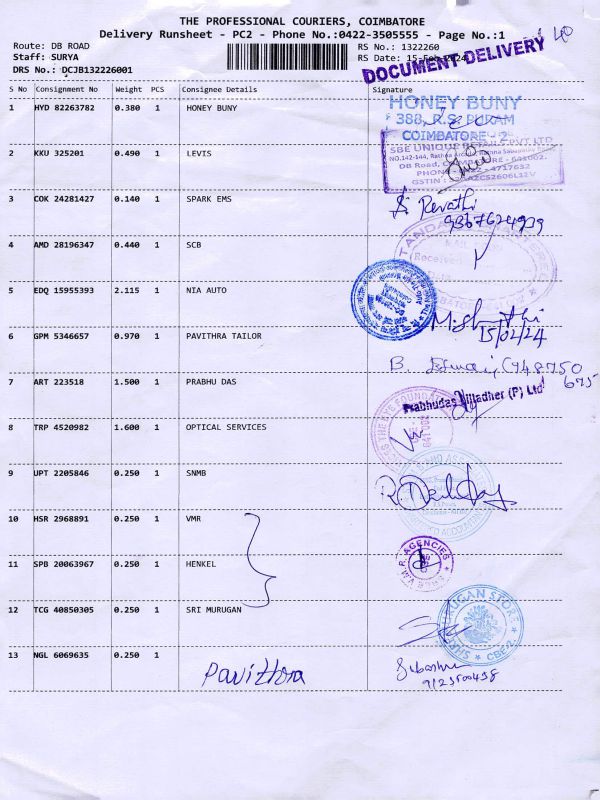 THE PROFESSIONAL COURIERS, COIMBATORE
Delivery Runsheet - PC2 - Phone No.:0422-3505555 - Page No.:1
Route: DB ROAD
Staff: SURYA
DRS No.: DCJB132226001
RS No.: 1322260
RS Date: 15-Feb-2024
DOCUMENT DELIVERY
40
S No Consignment No Weight PCS Consignee Details Signature
1 HYD 82263782 0.380 1 HONEY BUNY
HONEY BUNY
388, R.S. PURAM
COIMBATORE - 2
2 KKU 325201 0.490 1 LEVIS
SBE UNIQUE PVT LTD
DB Road, 641002.
PHONE 4717632
GSTIN
3 COK 24281427 0.140 1 SPARK EMS
Revathi
4 AMD 28196347 0.440 1 SCB
5 EDQ 15955393 2.115 1 NIA AUTO
15/02/24
6 GPM 5346657 0.970 1 PAVITHRA TAILOR
B. (948750
675
7 ART 223518 1.500 1 PRABHU DAS
Prabhudas Lilladher (P) Ltd
8 TRP 4520982 1.600 1 OPTICAL SERVICES
9 UPT 2205846 0.250 1 SNMB
10 HSR 2968891 0.250 1 VMR
11 SPB 20063967 0.250 1 HENKEL
V.M.R. AGENCIES
12 TCG 40850305 0.250 1 SRI MURUGAN
MURUGAN STORE
CBE-2.
13 NGL 6069635 0.250 1
Pavithra